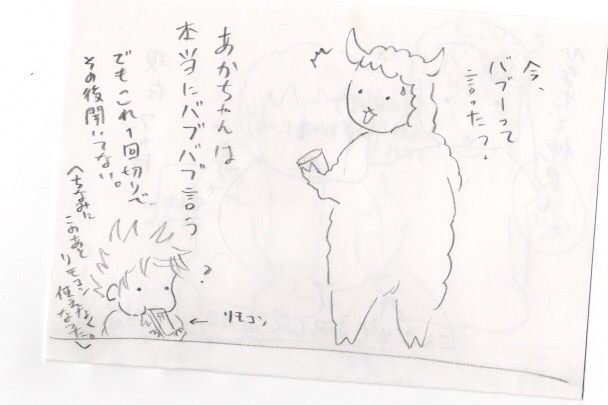 今、
バブーって
言った？
あかちゃんは
本当にバブバブ言う
でもこれ1回切りで
その後聞いてない。
？
← リモコン
〈ちなみに
このあと
リモコン
使えなく
なった。〉